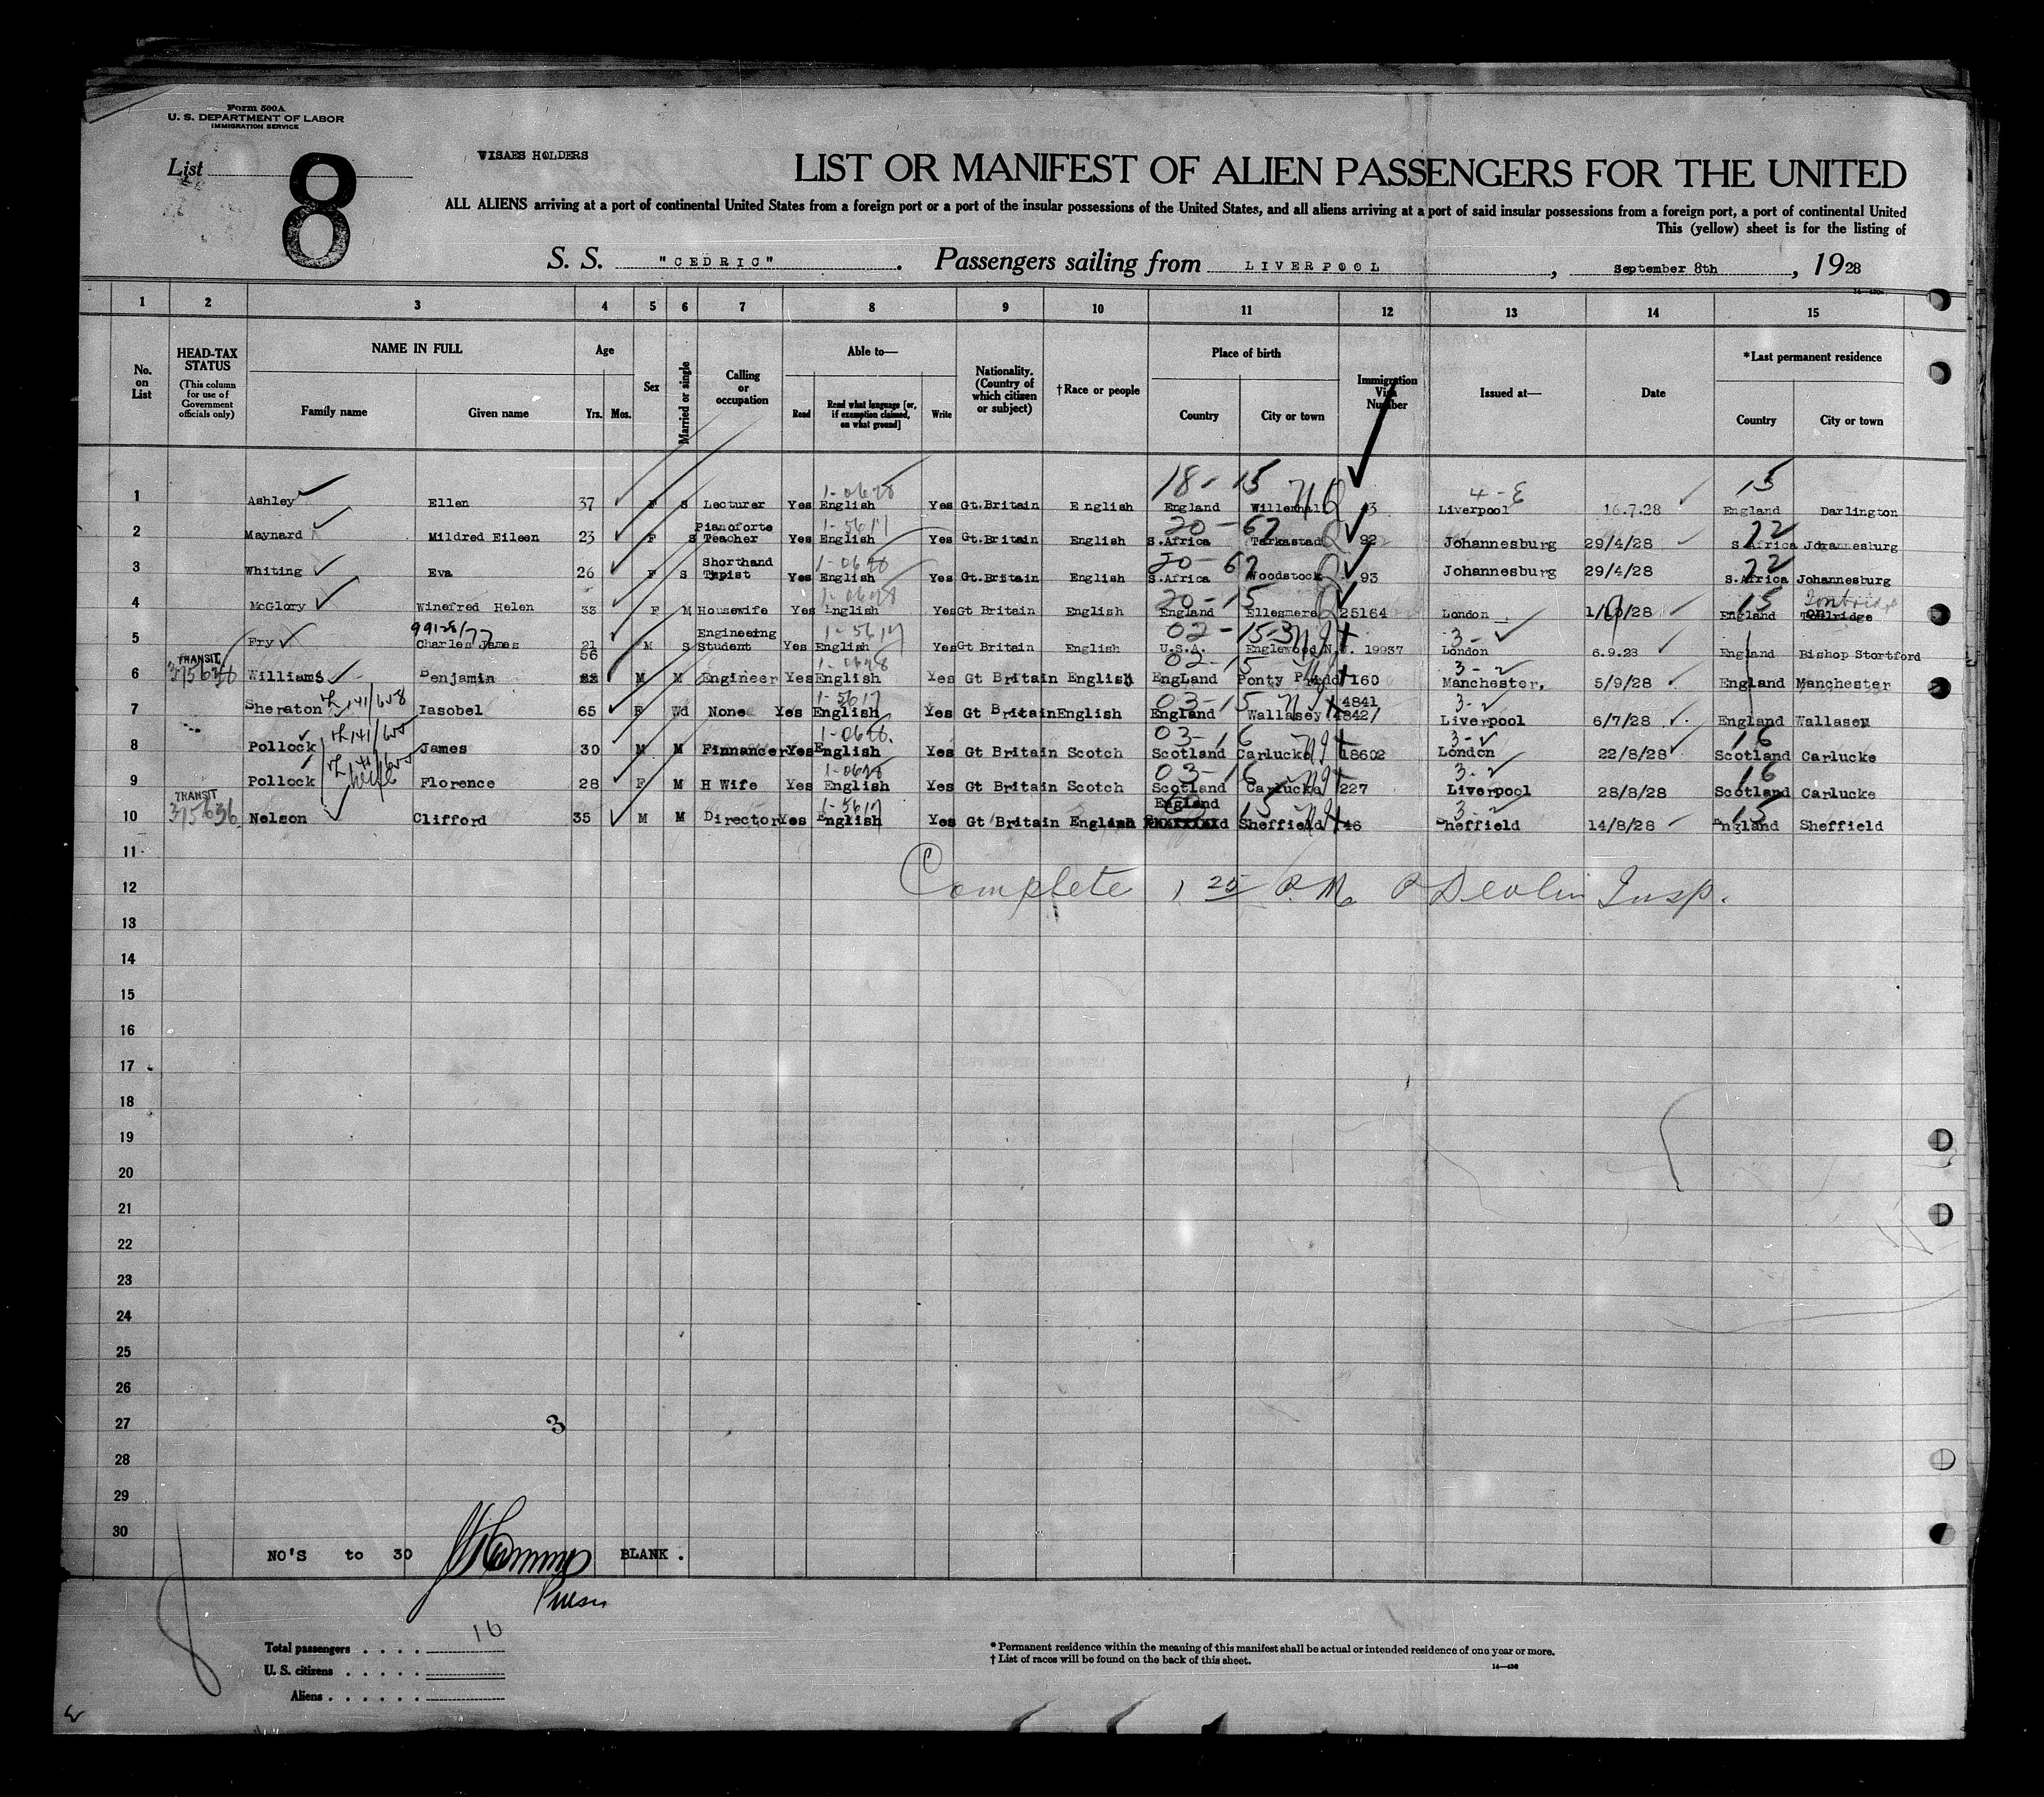 Form 500A
U. S. DEPARTMENT OF LABOR
IMMIGRATION SERVICE
List 8
VISAES HOLDERS
LIST OR MANIFEST OF ALIEN PASSENGERS FOR THE UNITED
ALL ALIENS arriving at a port of continental United States from a foreign port or a port of the insular possessions of the United States, and all aliens arriving at a port of said insular possessions from a foreign port, a port of continental United
This (yellow) sheet is for the listing of
S. S. "CEDRIC". Passengers sailing from LIVERPOOL, September 8th, 1928
1 2 3 4 5 6 7 8 9 10 11 12 13 14 15
No. on List
HEAD-TAX STATUS (This column for use of Government officials only)
NAME IN FULL
Family name Given name
Age
Yrs. Mos.
Sex
Married or single
Calling or occupation
Able to—
Read
Read what language [or, if exemption claimed, on what ground]
Write
Nationality. (Country of which citizen or subject)
†Race or people
Place of birth
Country City or town
Immigration Visa Number
Issued at—
Date
*Last permanent residence
Country City or town
18-15 15
1-0628 4-E
1 Ashley Ellen 37 F S Lecturer Yes English Yes Gt.Britain English England Willenhall 13 Liverpool 16.7.28 England Darlington
20-67 1-5617
2 Maynard Mildred Eileen 23 F S Pianoforte Teacher Yes English Yes Gt.Britain English S.Africa Tarkastad 92 Johannesburg 29/4/28 S.Africa Johannesburg
20-67 1-0628
3 Whiting Eva 26 F S Shorthand Typist Yes English Yes Gt.Britain English S.Africa Woodstock 93 Johannesburg 29/4/28 S.Africa Johannesburg
20-15 1-0628 15 Tonbridge
4 McGlory Winefred Helen 33 F M Housewife Yes English Yes Gt Britain English England Ellesmere 25164 London England
99128/77 02-15-3 1-5617 3-
5 Fry Charles James 21 M S Engineeing Student Yes English Yes Gt Britain English U.S.A. Englewood N.J. 19937 London 6.9.28 England Bishop Stortford
TRANSIT 56 02-15 1-0628 3-
6 Williams Benjamin M M Engineer Yes English Yes Gt Britain English EngLand Ponty 160 Manchester. 5/9/28 England Manchester
03-15 1-5617 3-
7 Sheraton Iasobel 65 F Wd None Yes English Yes Gt Britain English England Wallasey 4841 4842/ Liverpool 6/7/28 England Wallasey
03-16 1-0628 3- 16
8 Pollock James 30 M M Finnancer Yes English Yes Gt Britain Scotch Scotland Carlucke 18602 London 22/8/28 Scotland Carlucke
03-16 1-0628 3- 16
9 Pollock Florence 28 F M H Wife Yes English Yes Gt Britain Scotch Scotland Carlucke 227 Liverpool 28/8/28 Scotland Carlucke
TRANSIT 1-5617 England 15 3- 15
10 Nelson Clifford 35 M M Director Yes English Yes Gt Britain English Sheffield 46 Sheffield 14/8/28 England Sheffield
11
12 Complete 1 25 P.M. P Devlin Insp.
13
14
15
16
17
18
19
20
21
22
23
24
25
26
27 3
28
29
30
NO'S to 30 BLANK.
Purser
Total passengers . . . . . 10
U. S. citizens . . . . .
Aliens . . . . . .
* Permanent residence within the meaning of this manifest shall be actual or intended residence of one year or more.
† List of races will be found on the back of this sheet.